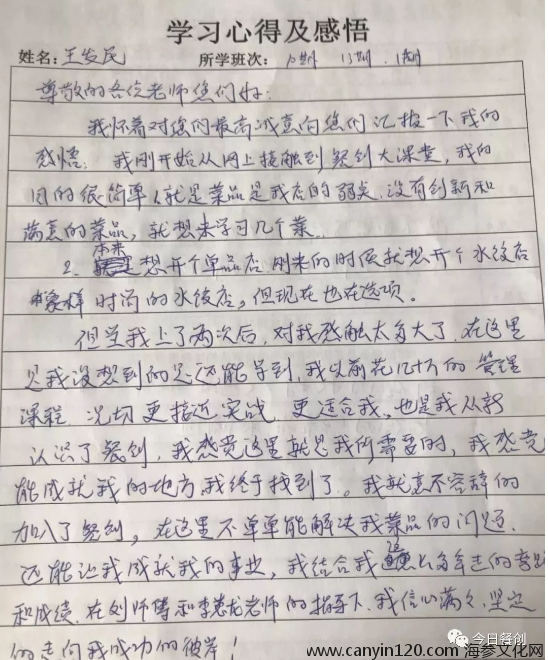 学习心得及感悟
姓名：王发民 所学班次： 期 13期 . 期
尊敬的各位老师您们好：
我怀着对您们最高诚意向您们汇报一下我的
感悟：我刚开始从网上接触到餐创大课堂，我的
目的很简单1.就是菜品是我店的弱点.没有创新和
满意的菜品，就想来学习几个菜.
2.本来想开个单品店 刚来的时侯就想开个水饺店
象样时尚的水饺店，但现在也在选项。
但当我上了两次后，对我感触太多大了，在这里
是我没想到的是还能学到，我以前花几十万的管理
课程. 况切更接近实战 更适合我，也是我从新
认识了餐创，我感觉这里就是我所需要的，我感觉
能成就我的地方，我终于找到了。我就意不容辞的
加入了餐创，在这里不单单能解决我菜品的问题.
还能让我成就我的事业，我结合我这么多年走的弯路
和成绩. 在刘师傅和李老师的指导下.我信心满满.坚定
的走向我成功的彼岸！
今日餐创
www.canyin120.com 海参文化网